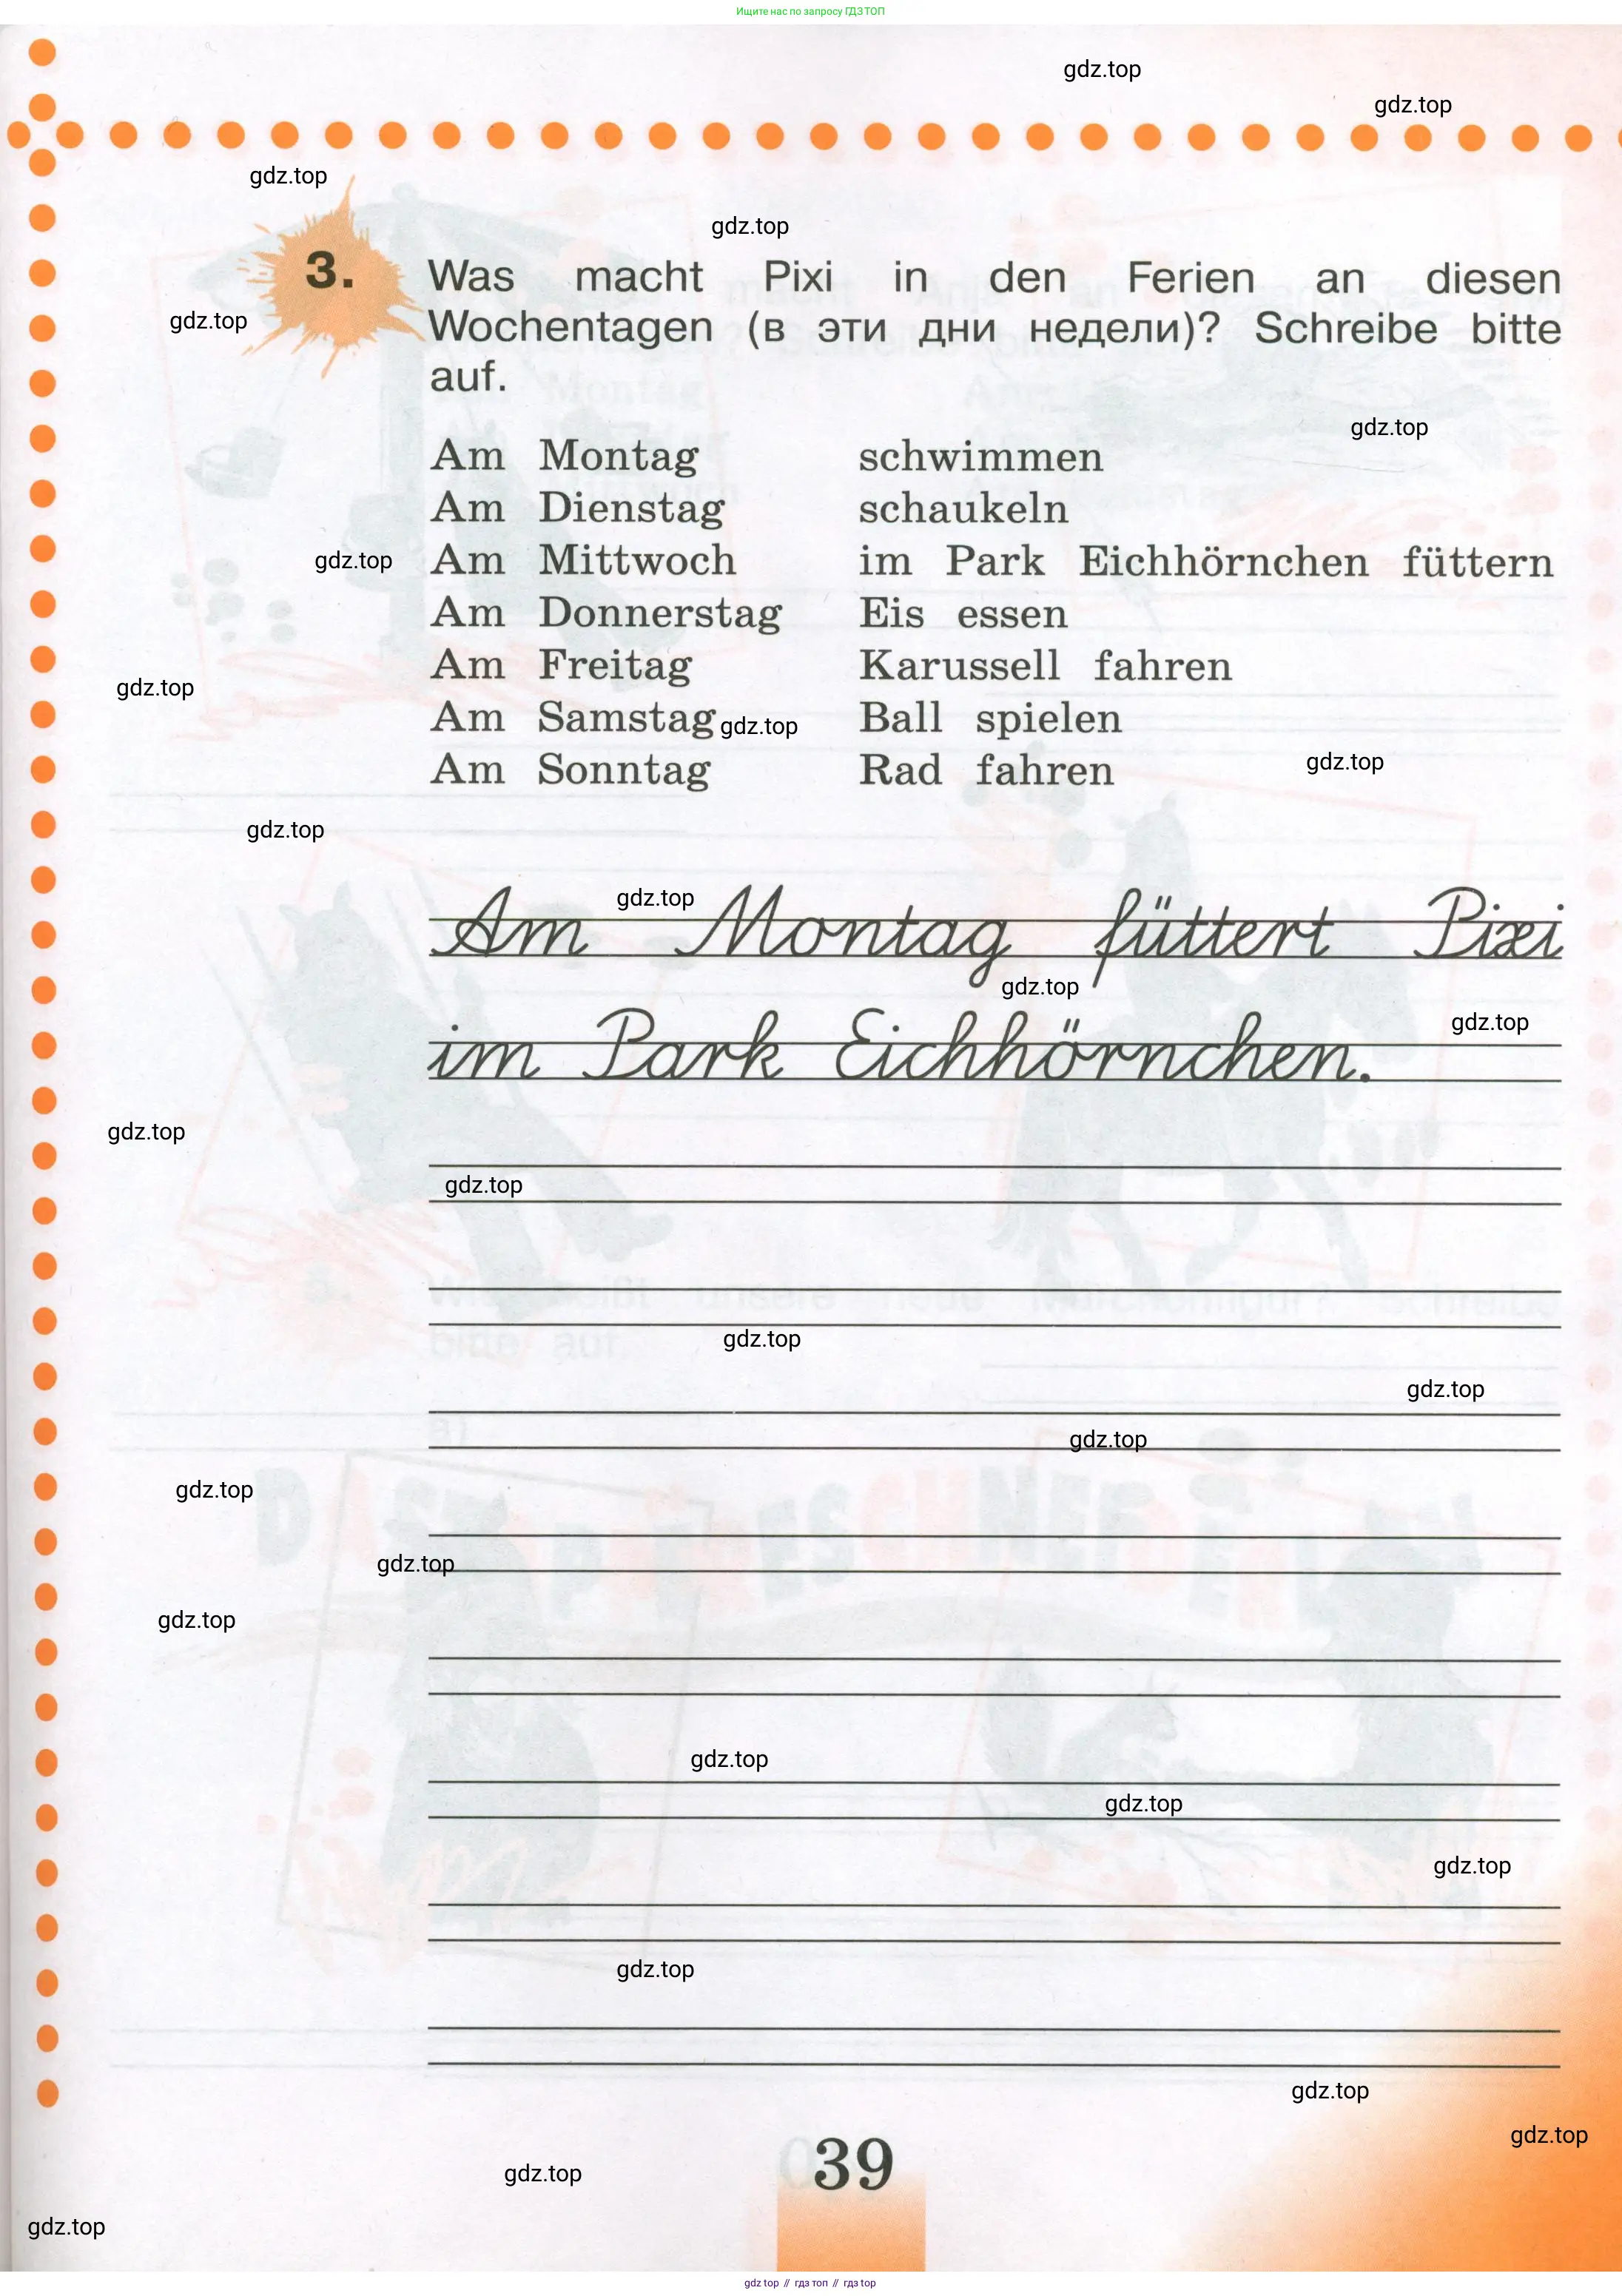 Ищите нас по запросу ГДЗ ТОП
gdz.top
gdz.top
gdz.top
gdz.top
3. Was macht Pixi in den Ferien an diesen
gdz.top
Wochentagen (в эти дни недели)? Schreibe bitte
auf.
gdz.top
Am Montag schwimmen
Am Dienstag schaukeln
gdz.top
Am Mittwoch im Park Eichhörnchen füttern
Am Donnerstag Eis essen
Am Freitag Karussell fahren
gdz.top
Am Samstag Ball spielen
gdz.top
gdz.top
Am Sonntag Rad fahren
gdz.top
gdz.top
Am Montag füttert Pixi
gdz.top
gdz.top
im Park Eichhörnchen.
gdz.top
gdz.top
gdz.top
gdz.top
gdz.top
gdz.top
gdz.top
gdz.top
gdz.top
gdz.top
gdz.top
gdz.top
gdz.top
gdz.top
39
gdz.top
gdz.top
gdz top // гдз топ // гдз top